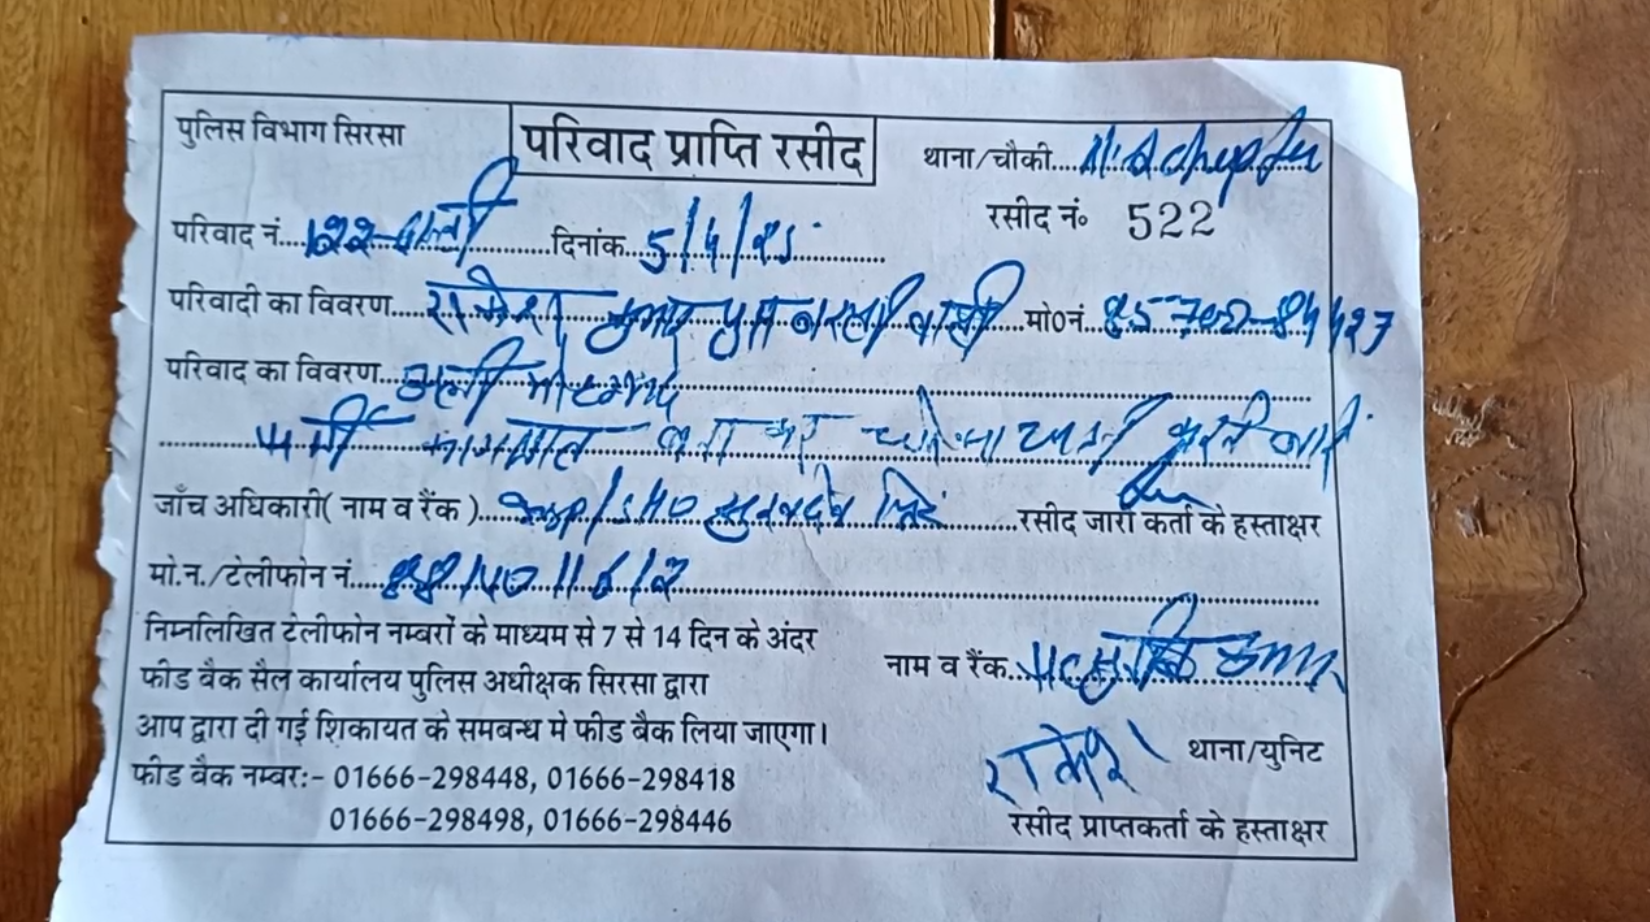 पुलिस विभाग सिरसा
परिवाद प्राप्ति रसीद
थाना/चौकी....
रसीद नं० 522
परिवाद नं....122- दिनांक...5/4/25
परिवादी का विवरण....राकेश कुमार पुत्र वासी मो0नं.
परिवाद का विवरण...
फर्जी कागजात बना कर धोखाधड़ी करने बारे
जाँच अधिकारी( नाम व रैंक )....Insp/SHO सुखदेव सिंह ....रसीद जारी कर्ता के हस्ताक्षर
मो.न./टेलीफोन नं....8814011612
निम्नलिखित टेलीफोन नम्बरों के माध्यम से 7 से 14 दिन के अंदर
फीड बैक सैल कार्यालय पुलिस अधीक्षक सिरसा द्वारा
आप द्वारा दी गई शिकायत के समबन्ध मे फीड बैक लिया जाएगा।
फीड बैक नम्बर:- 01666-298448, 01666-298418
01666-298498, 01666-298446
नाम व रैंक... कुमार
राकेश थाना/युनिट
रसीद प्राप्तकर्ता के हस्ताक्षर